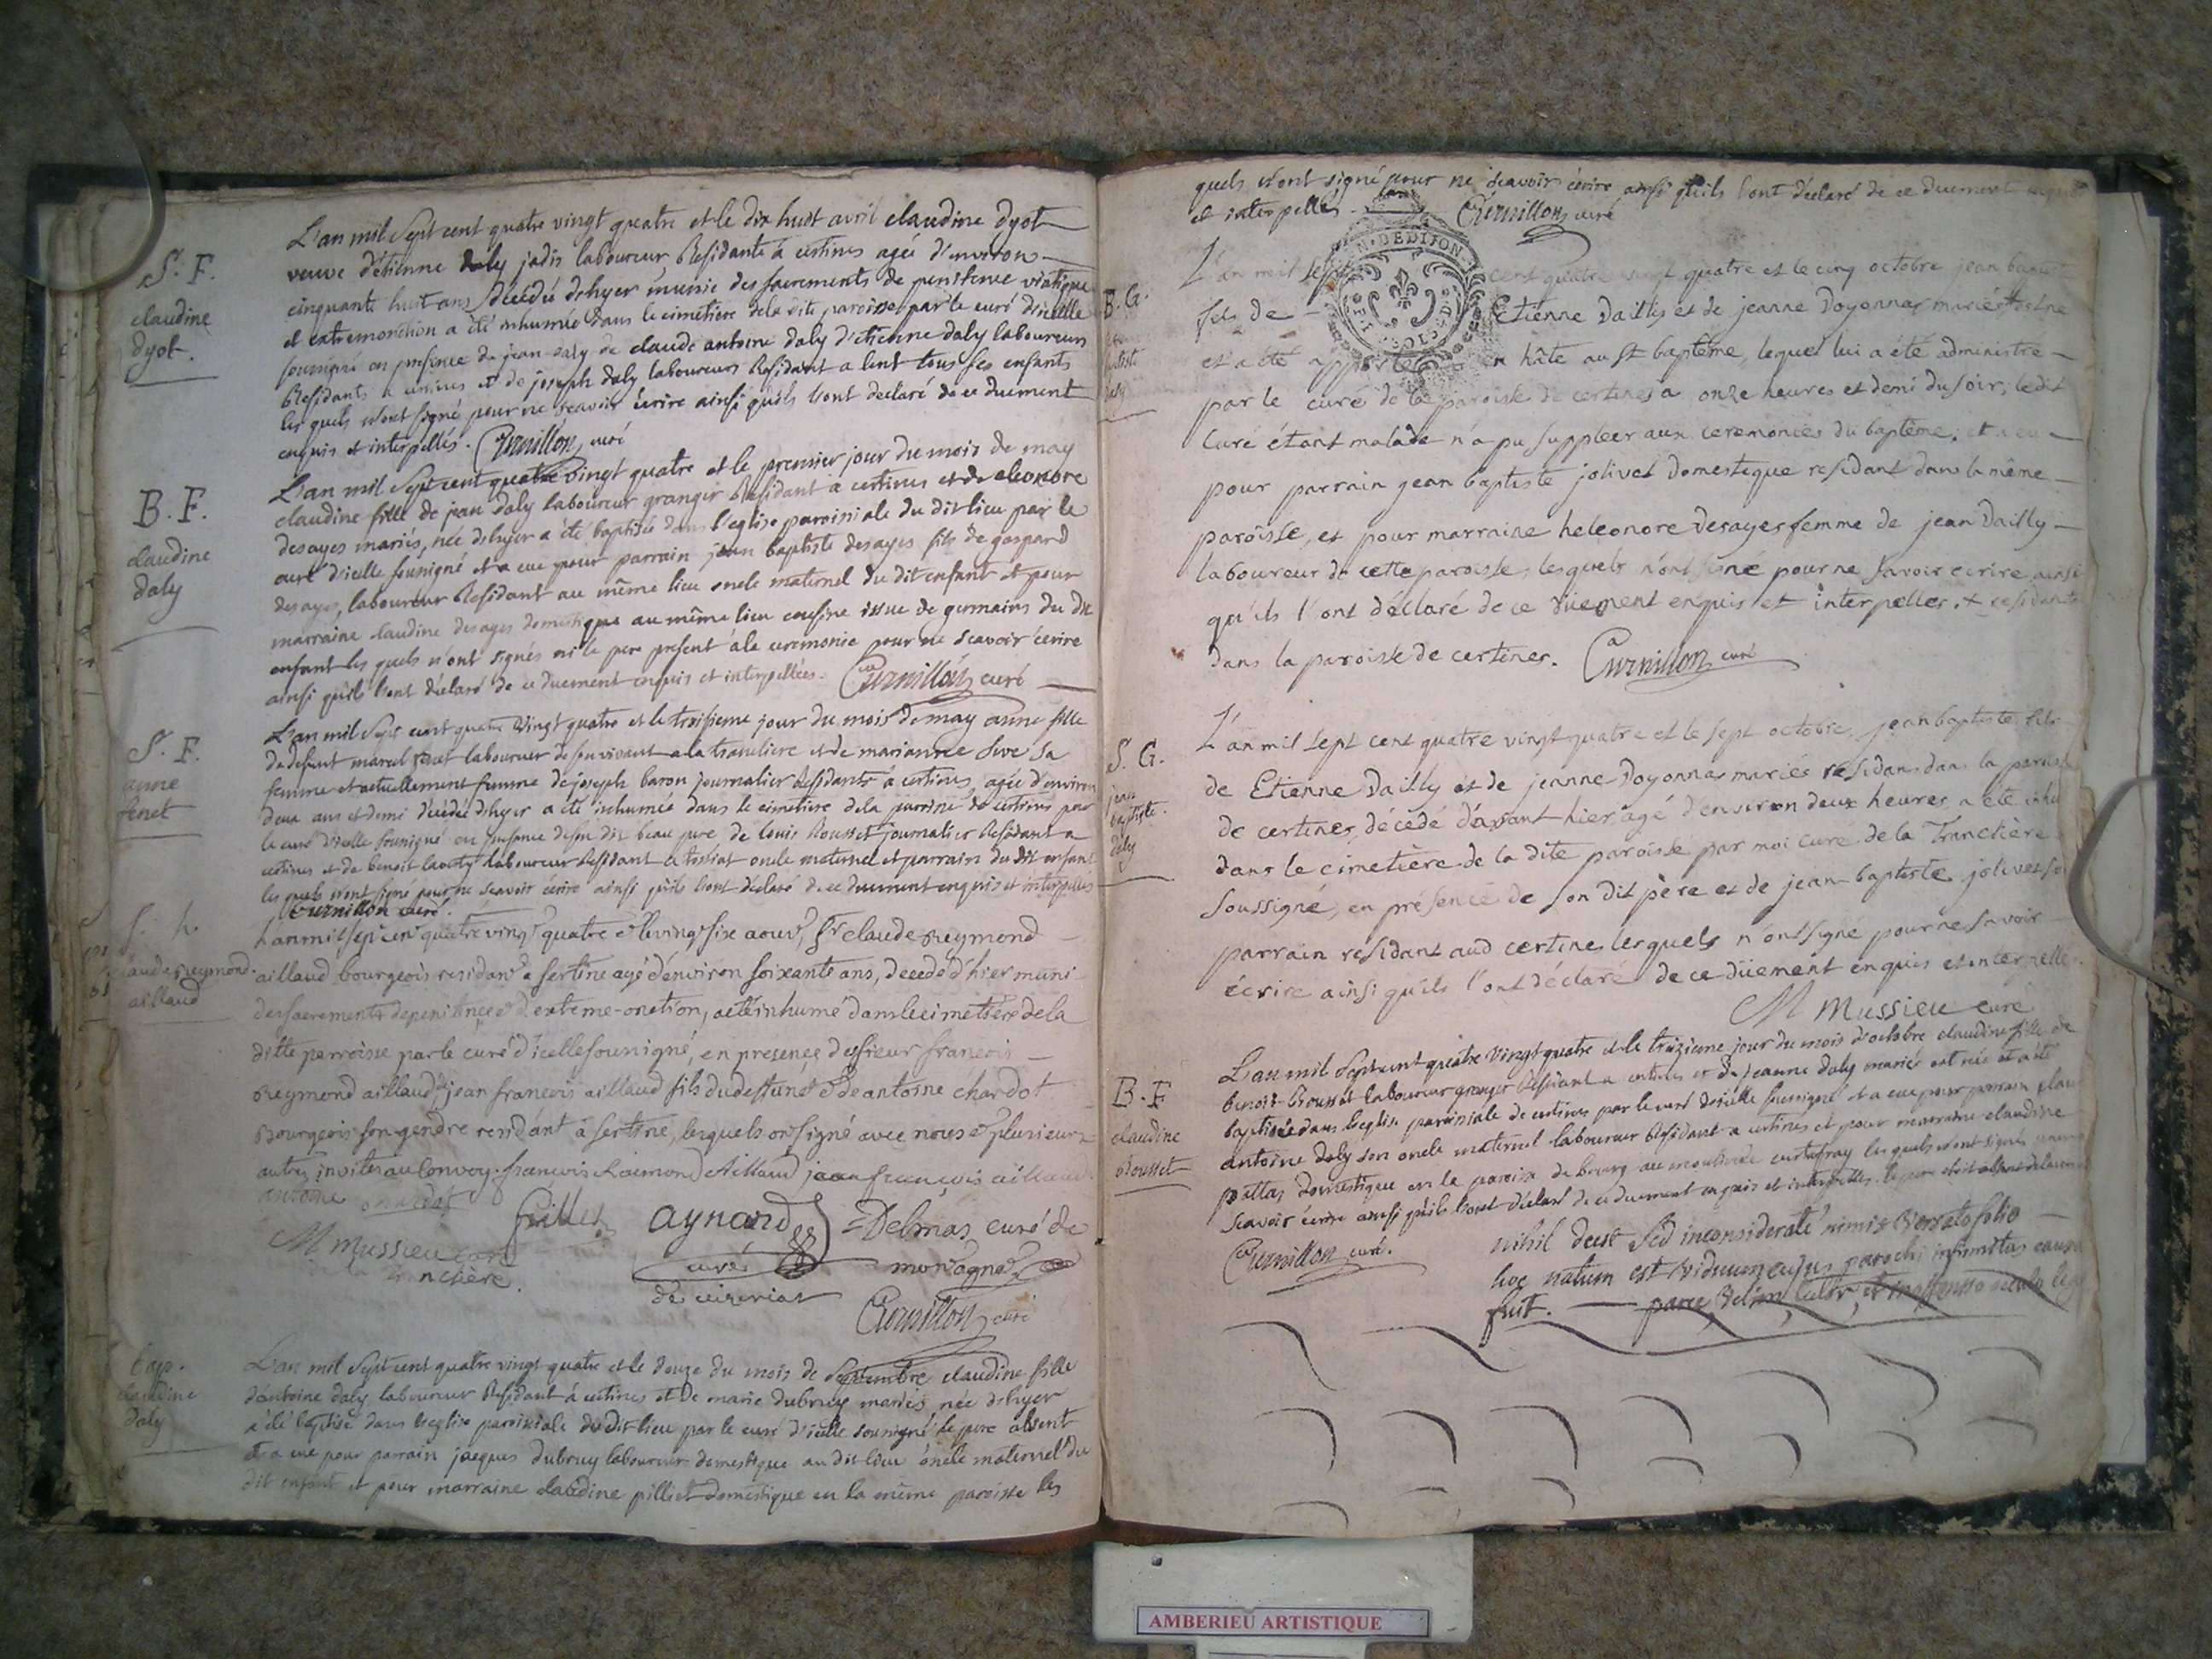 S. F.
claudine
dyot.
L'an mil Sept cent quatre vingt quatre et le dix huit avril claudine dyot
veuve d'étienne daly jadis laboureur Residante à certines agée d'environ
cinquante huit ans décédée dehyer munie des sacrements de penitence viatique
et extremonction a été inhumée dans le cimetiere dela dite paroisse par le curé d'icelle
soussigné en presence de jean daly de claude antoine daly d'etienne daly laboureurs
Residants a certines et de joseph daly laboureur Residant a lent tous ses enfants
les quels n'ont signé pour ne scavoir écrire ainsi quils l'ont declaré de ce duement
enquis et interpellés. Curnillon curé
B. F.
claudine
daly
L'an mil Sept cent quatre vingt quatre et le premier jour du mois de may
claudine fille de jean daly laboureur granger Residant a certines et de eleonore
desayes mariés, née dehyer a été baptisée dans l'eglise paroissiale du dit lieu par le
curé d'icelle sousigné et a eue pour parrain jean baptiste desayes fils de gaspard
desayes, laboureur Residant au même lieu oncle maternel du dit enfant et pour
marraine claudine desayes domestique au même lieu cousine issue de germains du dit
enfant les quels n'ont signés ni le pere present à la ceremonie pour ne scavoir écrire
ainsi quils l'ont déclaré de ce duement enquis et interpellées. Curnillon curé
S. F.
anne
fenet
L'an mil Sept cent quatre vingt quatre et le troisieme jour du mois de may anne fille
de defunt marcel laboureur de son vivant a la trancliere et de marianne sa
femme et actuellement femme de joseph baron journalier Residante à certines, agée d'environ
deux ans et demi décédée dehyer a été inhumée dans le cimetiere dela paroisse de certines par
le curé d'icelle sousigné en presence de son dit beau pere de louis Rousset journalier Residant a
certines et de benoit laboureur Residant a tossiat oncle maternel et parrain du dit enfant
les quels n'ont signé pour ne scavoir écrire ainsi quils l'ont déclaré de ce duement enquis et interpellés
Curnillon curé.
S. h.
claude reymond
aillaud
L'an mil sept cent quatre vingt quatre et le vingt six aout, Sr claude reymond
aillaud bourgeois residant a sertine agé d'environ soixante ans, decedé d'hier muni
des sacrements de penitence et d'extreme-onction, a été inhumé dans le cimetiere de la
ditte parroisse par le curé d'icelle sousigné, en présence du sieur françois
Reymond aillaud, de jean françois aillaud fils du deffunt et de antoine chardot
Bourgeois son gendre residant à sertine, lesquels ont signé avec nous et plusieurs
autres invités au Convoy. françois Raimond Aillaud jean françois aillaud
antoine chardot
aynard Delmas curé de
M Mussieu curé curé montagnat
Curnillon curé
Bap.
claudine
daly
L'an mil Sept cent quatre vingt quatre et le douze du mois de Septembre claudine fille
d'antoine daly laboureur Residant à certines et De marie dubruy mariés née dehyer
a été baptisée dans l'eglise paroissiale du dit lieu par le curé d'icelle sousigné le pere absent
et a eue pour parrain jacques dubruy laboureur domestique au dit lieu oncle maternel du
dit enfant et pour marraine claudine pilliet domestique en la même paroisse les
quels n'ont signé pour ne scavoir écrire ainsi qu'ils l'ont déclaré de ce duement enquis
et interpellés. Curnillon curé
N. DE DIJON
B. G.
L'an mil sept cent quatre vingt quatre et le cinq octobre jean bapt
fils de Etienne Dailly et de jeanne Doyonnas mariés
et a été apporté en hâte au St baptême, lequel lui a été administré
par le curé de la paroisse de certines à onze heures et demi du soir; le dit
Curé étant malade n'a pu suppleer aux ceremonies du baptême; et a eu
pour parrain jean baptiste jolivet Domestique residant dans la même
paroisse, et pour marraine heleonore Desayes femme de jean Dailly
laboureur de cette paroisse, lesquels n'ont signé pour ne savoir ecrire ainsi
qu'ils l'ont déclaré de ce düement enquis et interpeller. + residants
dans la paroisse de certines. Curnillon curé
S. G.
jean
baptiste.
daly
L'an mil sept cent quatre vingt quatre et le sept octobre, jean baptiste fils
de Etienne Dailly et de jeanne Doyonnas mariés residans dans la paroisse
de certines, décédé d'avant hier âgé d'environ deux heures, a été inhu
dans le cimetière de la dite paroisse par moi curé de la Tranclière
soussigné, en présence de son dit père et de jean-baptiste jolivet son
parrain residant aud certines lesquels n'ont signé pour ne savoir
écrire ainsi qu'ils l'ont déclaré de ce düement enquis et interpelles.
M Mussieu curé
B. F
claudine
Rousset
L'an mil Sept cent quatre vingt quatre et le treizieme jour du mois d'octobre claudine fille de
benoit Rousset laboureur granger Residant a certines et de jeanne daly mariés est née et a été
baptisée dans l'eglise paroissiale de certines par le curé d'icelle soussigné et a eue pour parrain claude
antoine daly son oncle maternel laboureur Residant a certines et pour marraine claudine
pattas domestique en la paroisse de bourg au moulin de curtafray les quels n'ont signés
scavoir écrire ainsi quils l'ont déclaré de ce duement enquis et interpellés. le pere étoit absent
Curnillon curé.
nihil deest Sed inconsiderate nimis verso folio
hoc natum est viduum cujus parochi infirmitas causa
fuit.
AMBERIEU ARTISTIQUE